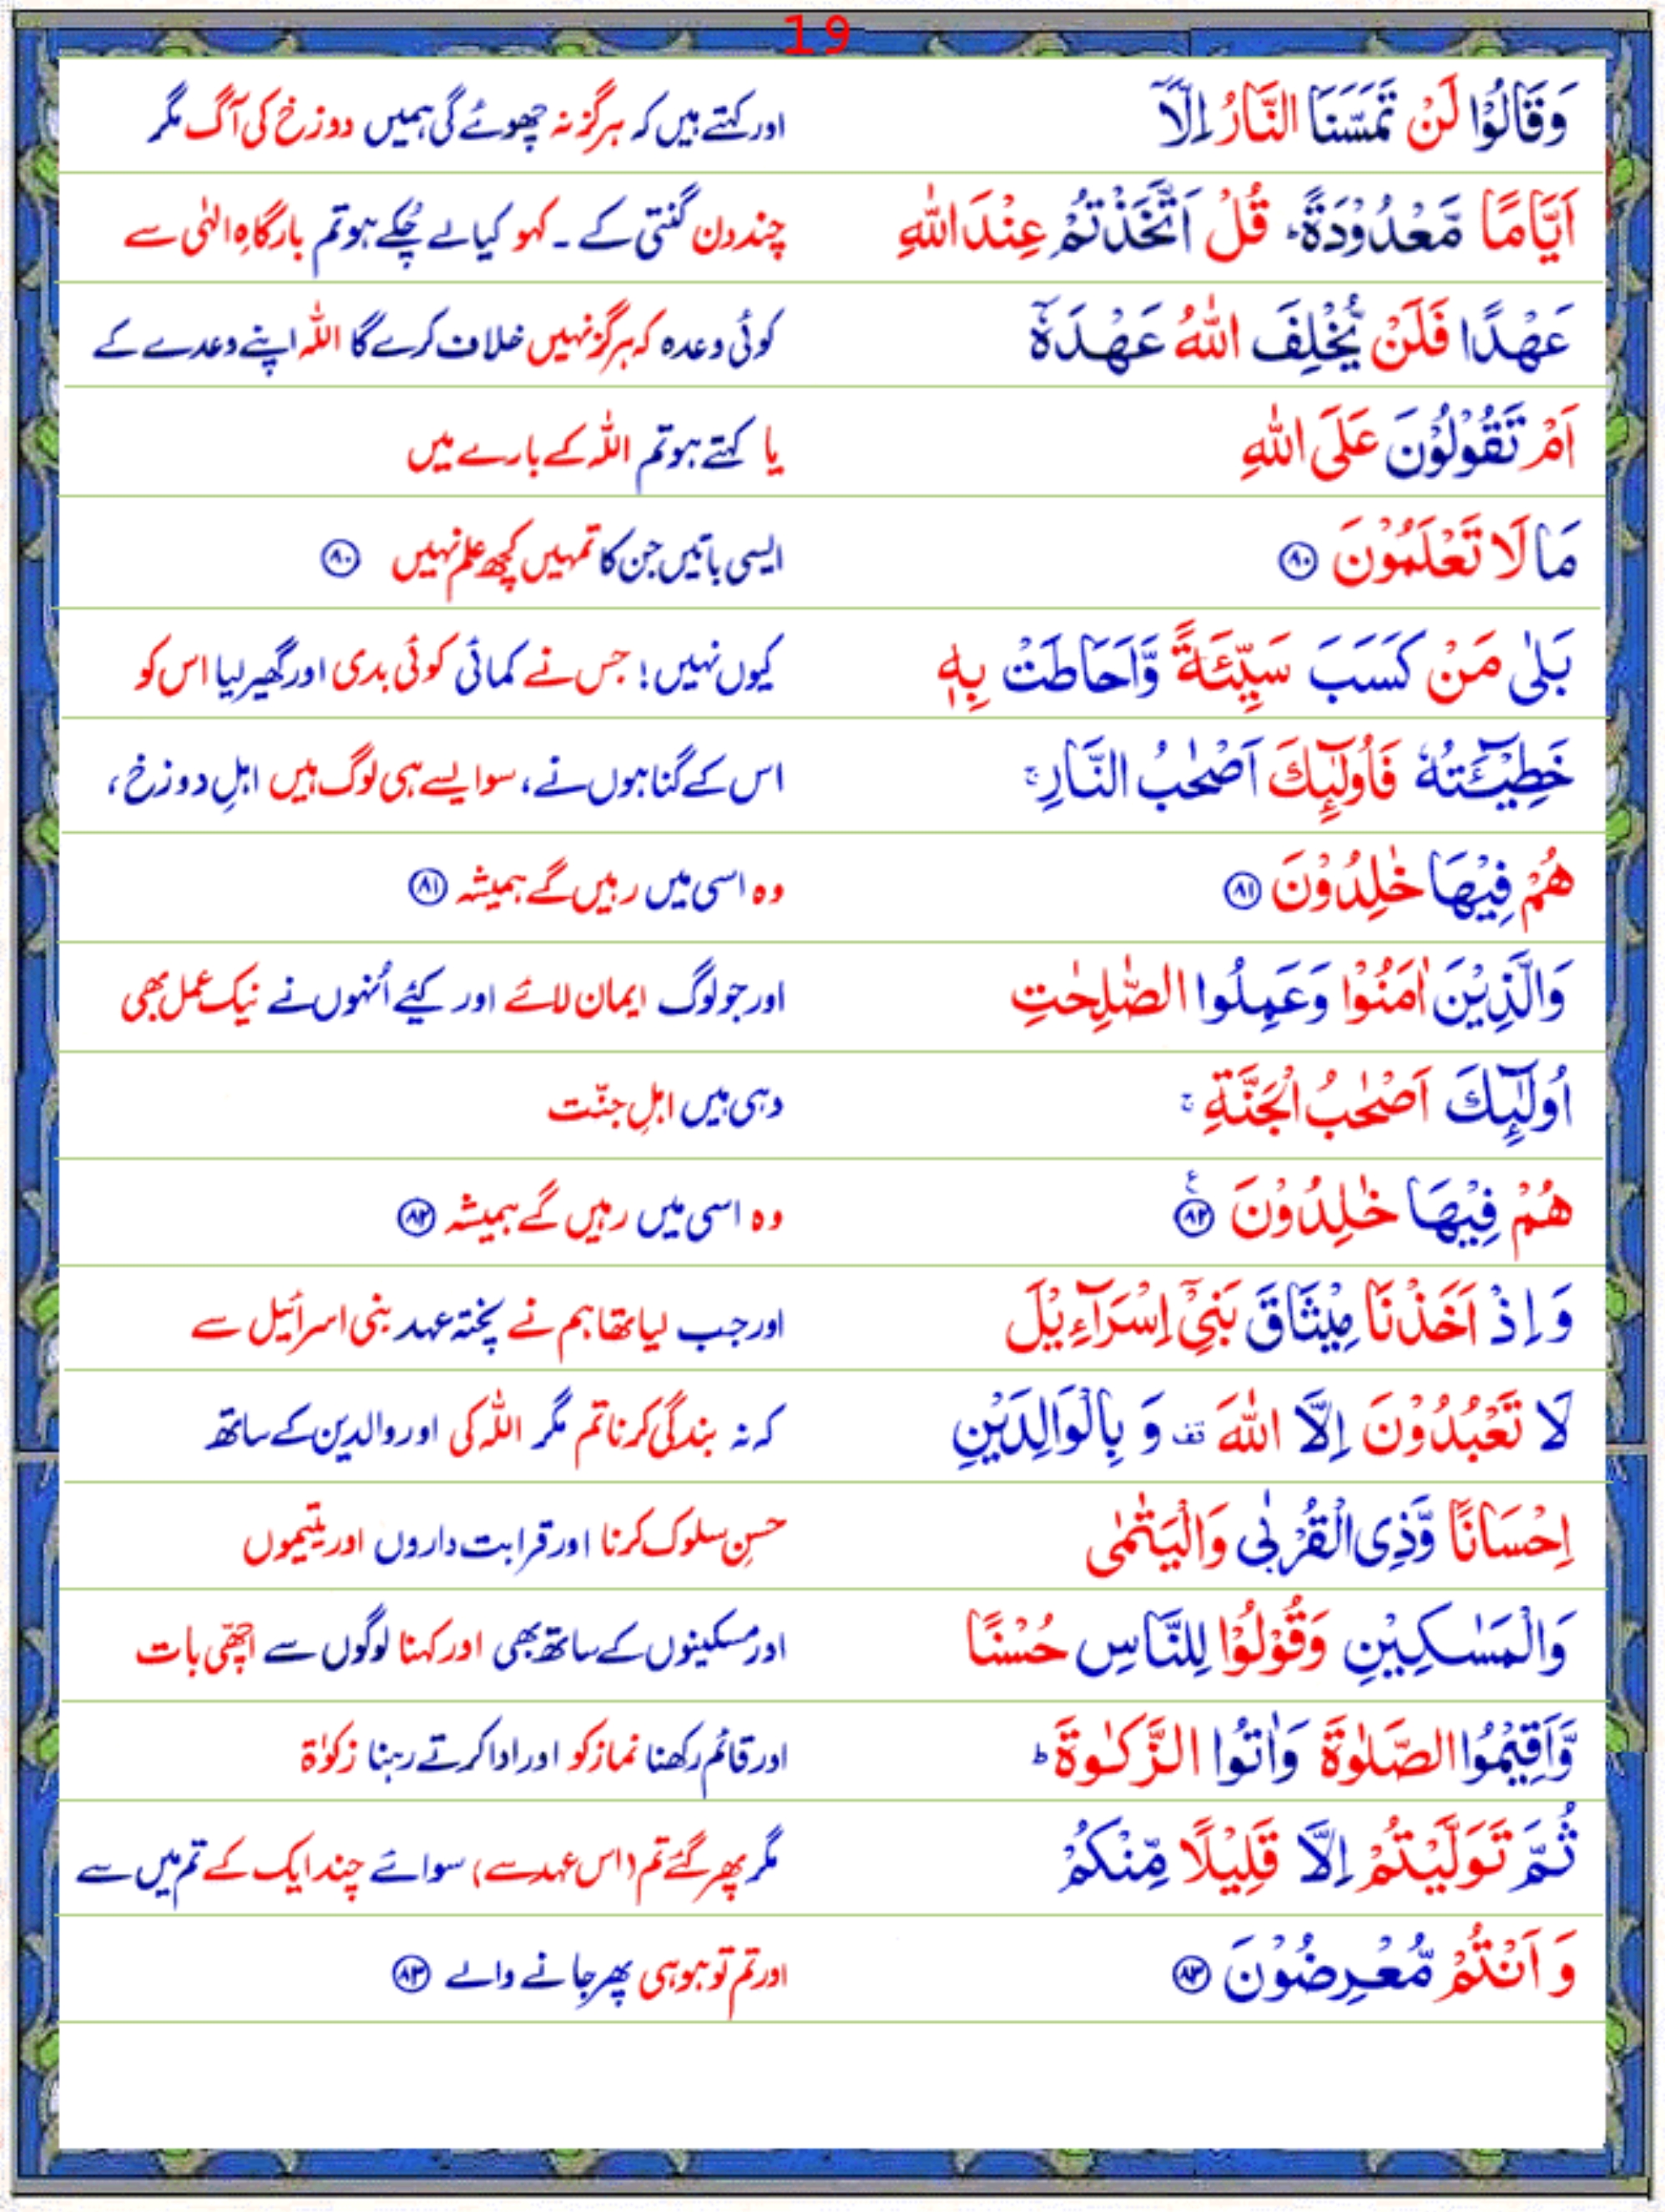 19
وَقَالُوْا لَنْ تَمَسَّنَا النَّارُ اِلَّاۤ اور کہتے ہیں کہ ہرگز نہ چھوئے گی ہمیں دوزخ کی آگ مگر
اَيَّامًا مَّعْدُوْدَةً ؕ قُلْ اَتَّخَذْتُمْ عِنْدَ اللّٰهِ چند دن گنتی کے ۔ کہو کیا لے چُکے ہو تم بارگاہِ الٰہی سے
عَهْدًا فَلَنْ يُّخْلِفَ اللّٰهُ عَهْدَهٗۤ کوئی وعدہ کہ ہرگز نہیں خلاف کرے گا اللہ اپنے وعدے کے
اَمْ تَقُوْلُوْنَ عَلَى اللّٰهِ یا کہتے ہو تم اللہ کے بارے میں
مَا لَا تَعْلَمُوْنَ ۸۰ ایسی باتیں جن کا تمہیں کچھ علم نہیں ۸۰
بَلٰى مَنْ كَسَبَ سَيِّئَةً وَّاَحَاطَتْ بِهٖ کیوں نہیں! جس نے کمائی کوئی بدی اور گھیر لیا اس کو
خَطِيْٓـَٔتُهٗ فَاُولٰٓٮِٕكَ اَصْحٰبُ النَّارِ ۚ اس کے گناہوں نے، سو ایسے ہی لوگ ہیں اہلِ دوزخ،
هُمْ فِيْهَا خٰلِدُوْنَ ۸۱ وہ اسی میں رہیں گے ہمیشہ ۸۱
وَالَّذِيْنَ اٰمَنُوْا وَعَمِلُوا الصّٰلِحٰتِ اور جو لوگ ایمان لائے اور کیئے اُنہوں نے نیک عمل بھی
اُولٰٓٮِٕكَ اَصْحٰبُ الْجَنَّةِ ۚ وہی ہیں اہلِ جنّت
هُمْ فِيْهَا خٰلِدُوْنَ ۸۲ ع وہ اسی میں رہیں گے ہمیشہ ۸۲
وَاِذْ اَخَذْنَا مِيْثَاقَ بَنِيْٓ اِسْرَآءِيْلَ اور جب لیا تھا ہم نے پختہ عہد بنی اسرائیل سے
لَا تَعْبُدُوْنَ اِلَّا اللّٰهَ قف وَ بِالْوَالِدَيْنِ کہ نہ بندگی کرنا تم مگر اللہ کی اور والدین کے ساتھ
اِحْسَانًا وَّذِى الْقُرْبٰى وَالْيَتٰمٰى حسنِ سلوک کرنا اور قرابت داروں اور یتیموں
وَالْمَسٰكِيْنِ وَقُوْلُوْا لِلنَّاسِ حُسْنًا اور مسکینوں کے ساتھ بھی اور کہنا لوگوں سے اچھّی بات
وَّاَقِيْمُوا الصَّلٰوةَ وَاٰتُوا الزَّكٰوةَ ؕ اور قائم رکھنا نماز کو اور ادا کرتے رہنا زکوٰۃ
ثُمَّ تَوَلَّيْتُمْ اِلَّا قَلِيْلًا مِّنْكُمْ مگر پھر گئے تم (اس عہد سے) سوائے چند ایک کے تم میں سے
وَ اَنْتُمْ مُّعْرِضُوْنَ ۸۳ اور تم تو ہو ہی پھر جانے والے ۸۳